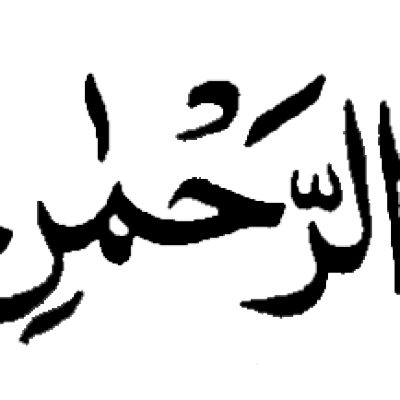 الرَّحْمٰنِ